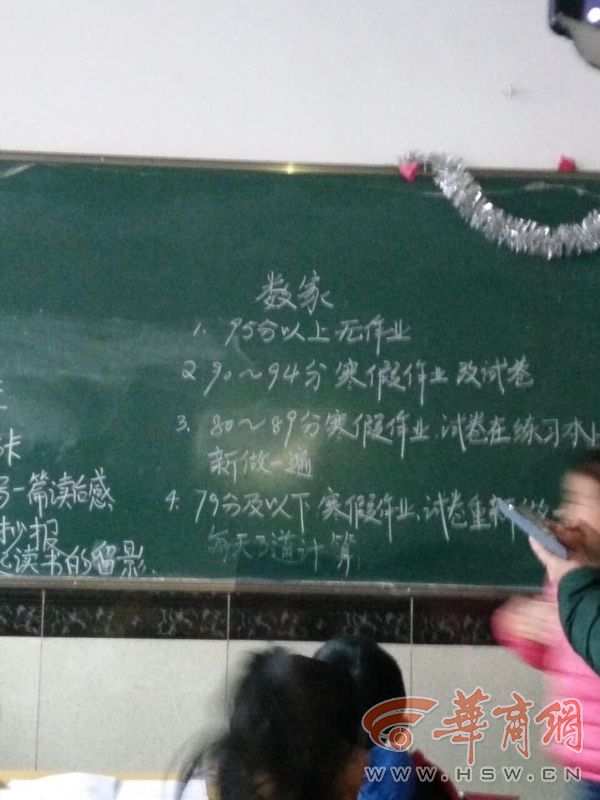 数家
1. 95分以上无作业
2 90~94分寒假作业 改试卷
3. 80~89分寒假作业,试卷在练习本上
新做一遍
4. 79分及以下 寒假作业、试卷重新做
每天3道计算.
一篇读后感
抄报
读书的留影.
華商網
WWW.HSW.CN